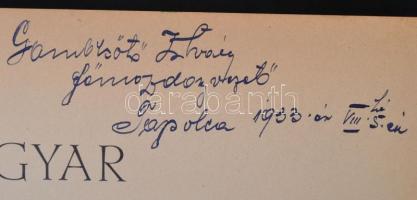 Gombkötő István
főmozdonyvezető
Tapolca 1933. év VIII. hó 5.-én
GYAR
darabanth